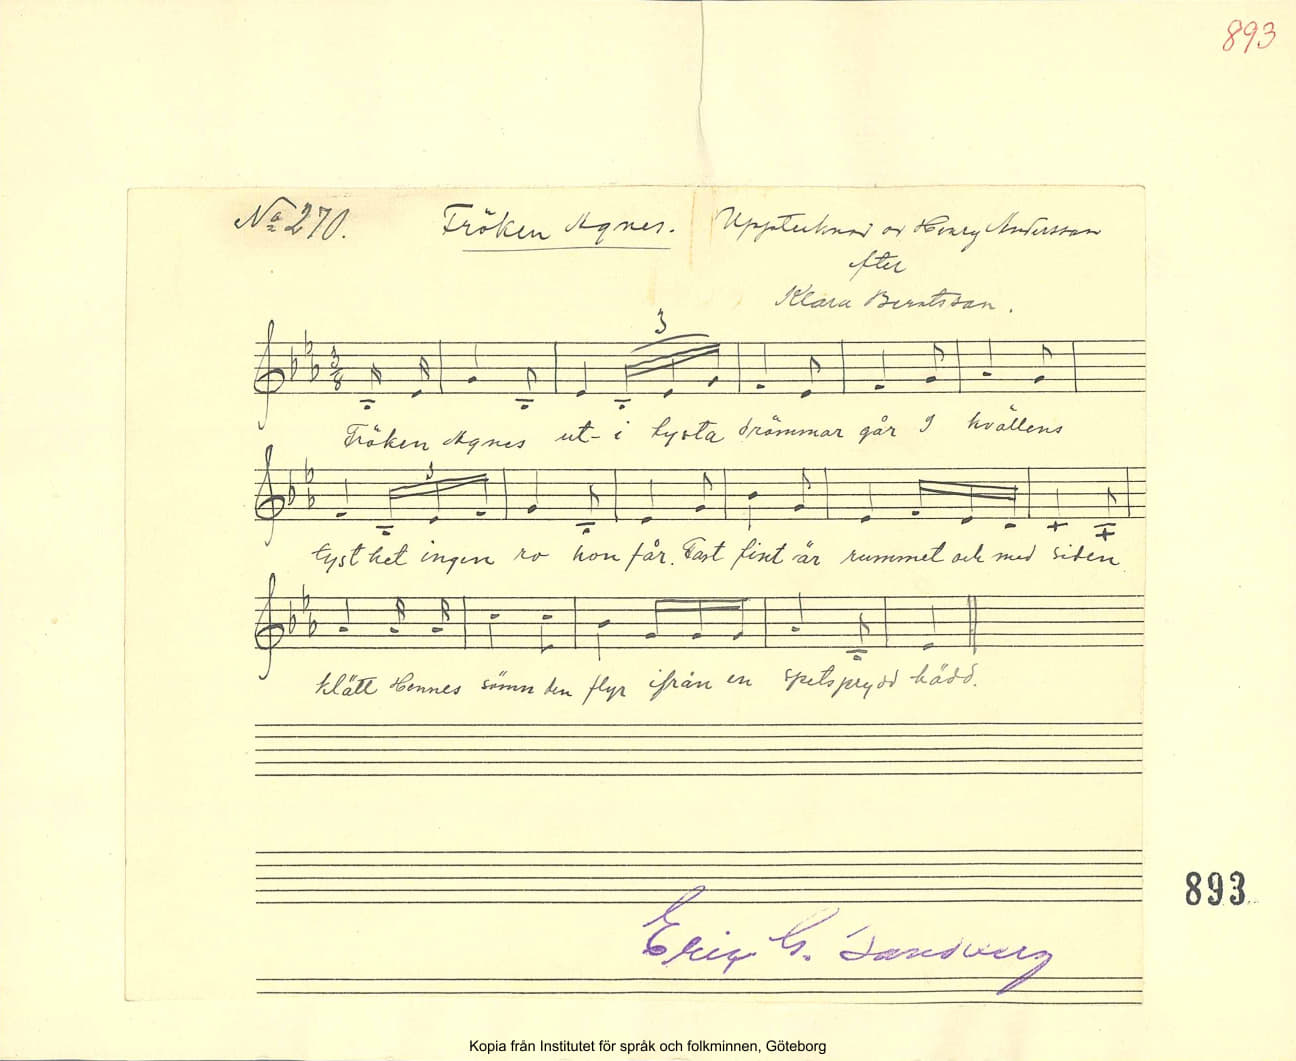 893
No 270. Fröken Agnes. Upptecknad av Henry Andersson
efter
Klara Berntsson.
3
3/8
Fröken Agnes ut- i tysta drömmar går I kvällens
3
tyst het ingen ro hon får. Fast fint är rummet och med siden
klätt Hennes sömn den flyr ifrån en spetsprydd bädd.
893
Erik G. Sandberg
Kopia från Institutet för språk och folkminnen, Göteborg